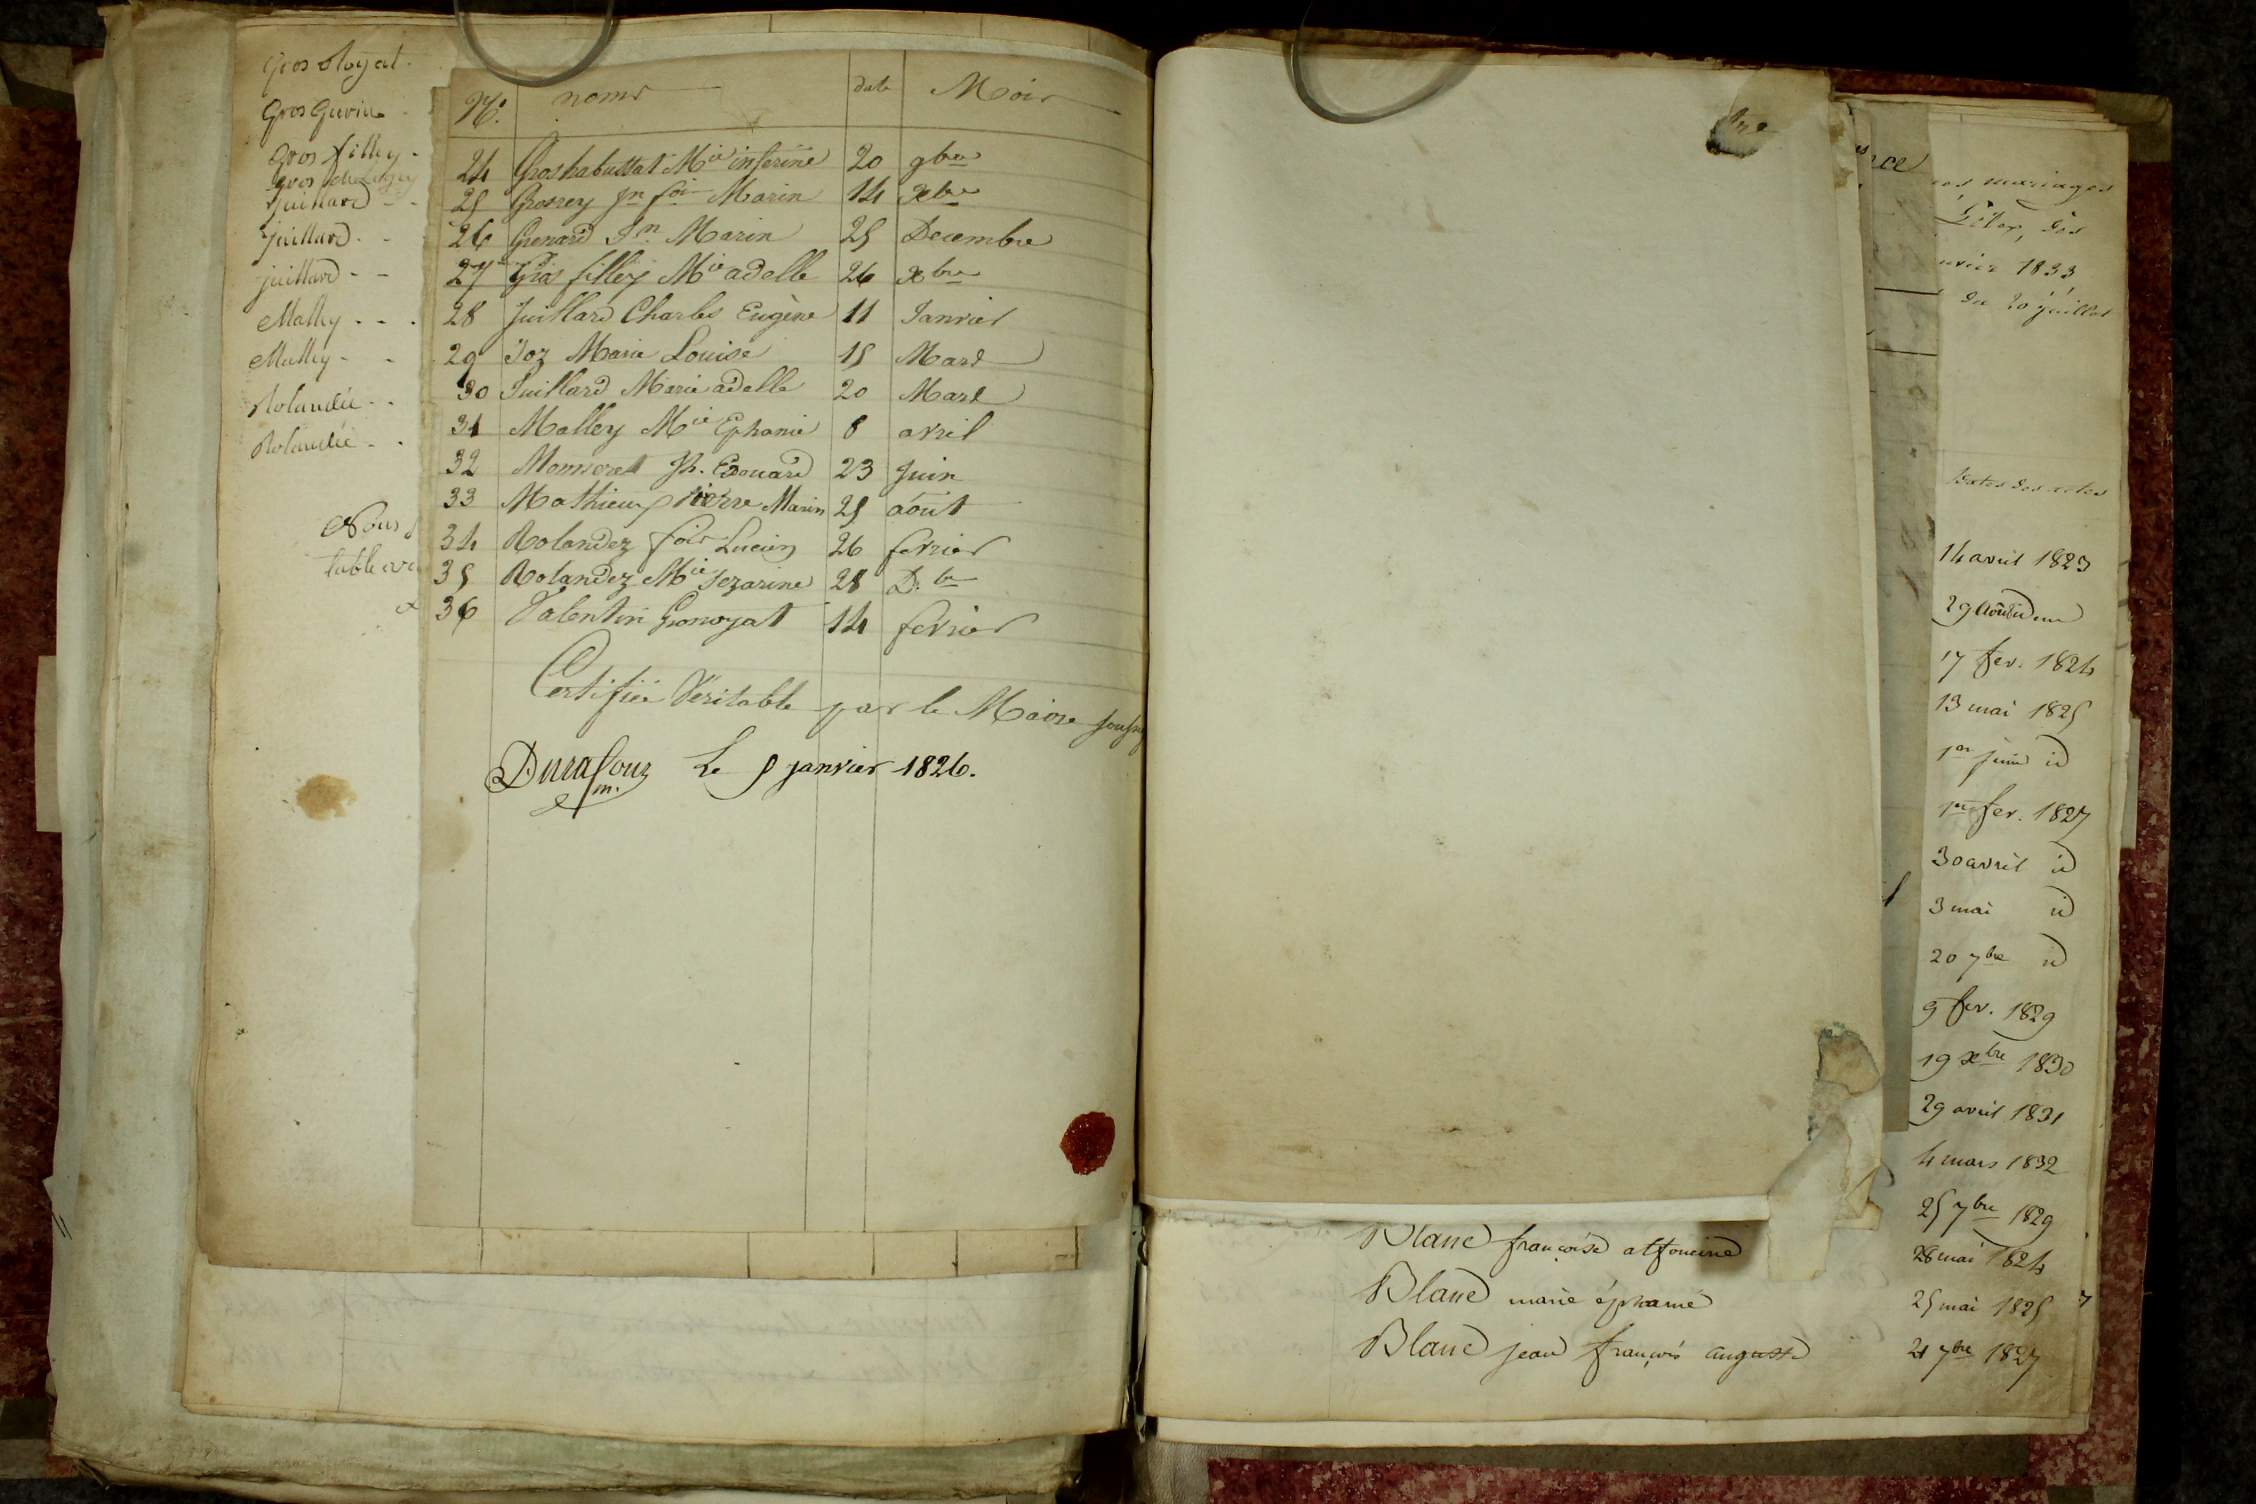 Gros
Gros Gurin
Gros filley
Gros
Juillard
Juillard
juillard
Malley
Malley
Rolandée
Rolandée
Nous
table
N.º noms date Mois
24 Groshabussat Mie inserine 20 9bre
25 Grosrey jn fois Marin 14 Xbre
26 Grenard Jn Marin 25 Decembre
27 Gros filley Mie adelle 26 xbre
28 Juillard Charles Eugène 11 Janvier
29 Joz Marie Louise 15 Mars
30 Juillard Marie adelle 20 Mars
31 Malley Mie Ephanie 8 avril
32 Monneret Jh. Edouard 23 Juin
33 Mathieu pierre Marin 25 août
34 Rolandez fois Lucien 26 fevrier
35 Rolandez Mie Sezarine 28 D.bre
36 Valentin Gronoyat 14 fevrier
Certifiée Veritable par le Maire
Durafour m. Le 5 janvier 1826.
mariages
1833
du 20 juillet
Dates des actes
14 avril 1823
29 août
17 fev. 1824
13 mai 1825
1er juin id
1er fev. 1827
30 avril id
3 mai id
20 7bre id
9 fev. 1829
19 xbre 1830
29 avril 1831
4 mars 1832
25 7bre 1829
Blanc françoise alfoncine 28 mai 1824
Blanc marie éphanie 25 mai 1825
Blanc jean françois auguste 21 7bre 1827